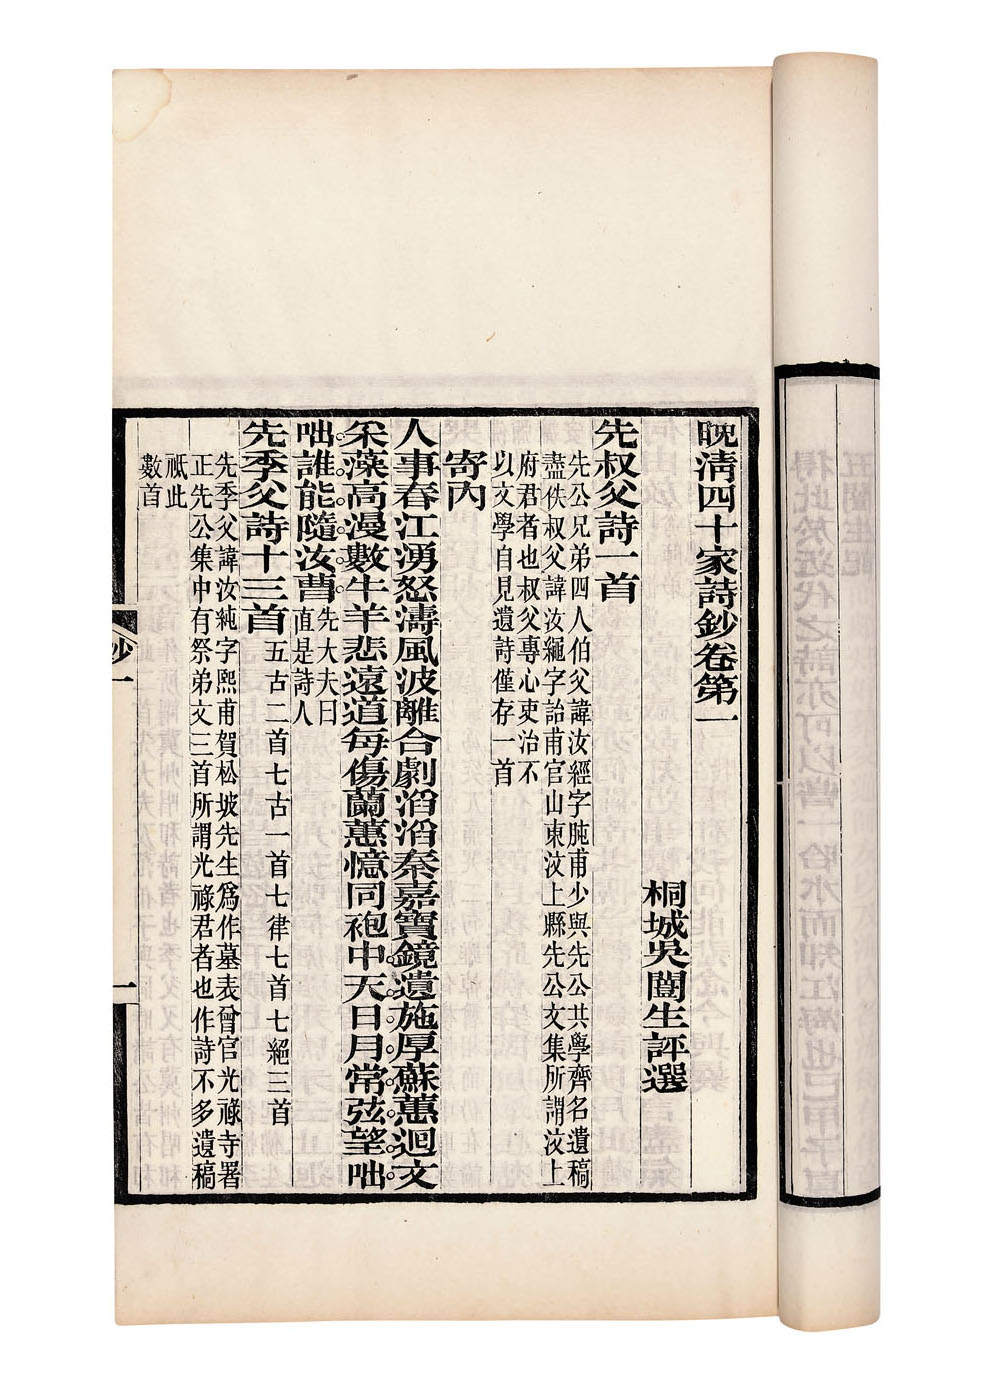 晚清四十家詩鈔卷第一
桐城吳闓生評選
先叔父詩一首
先公兄弟四人伯父諱汝經字肫甫少與先公共學齊名遺稿
盡佚叔父諱汝繩字詒甫官山東汶上縣先公文集所謂汶上
府君者也叔父專心吏治不
以文學自見遺詩僅存一首
寄內
人事春江湧怒濤風波離合劇滔滔秦嘉寶鏡遺施厚蘇蕙迴文
采藻高漫數牛羊悲遠道每傷蘭蕙憶同袍中天日月常弦望咄
咄誰能隨汝曹
先大夫曰
直是詩人
先季父詩十三首
五古二首七古一首七律七首七絕三首
先季父諱汝純字熙甫賀松坡先生爲作墓表曾官光祿寺署
正先公集中有祭弟文三首所謂光祿君者也作詩不多遺稿
祇此
數首
鈔一
一
得此於近代之詩亦可以嘗一哈水而知江海也已甲子夏
五闓生記